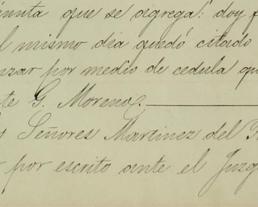 que se agrega: doy f
l mismo dia quedó citado
nzar por medio de cedula qu
te G. Moreno.
s Señores Martinez del P
r por escrito ante el Juzg